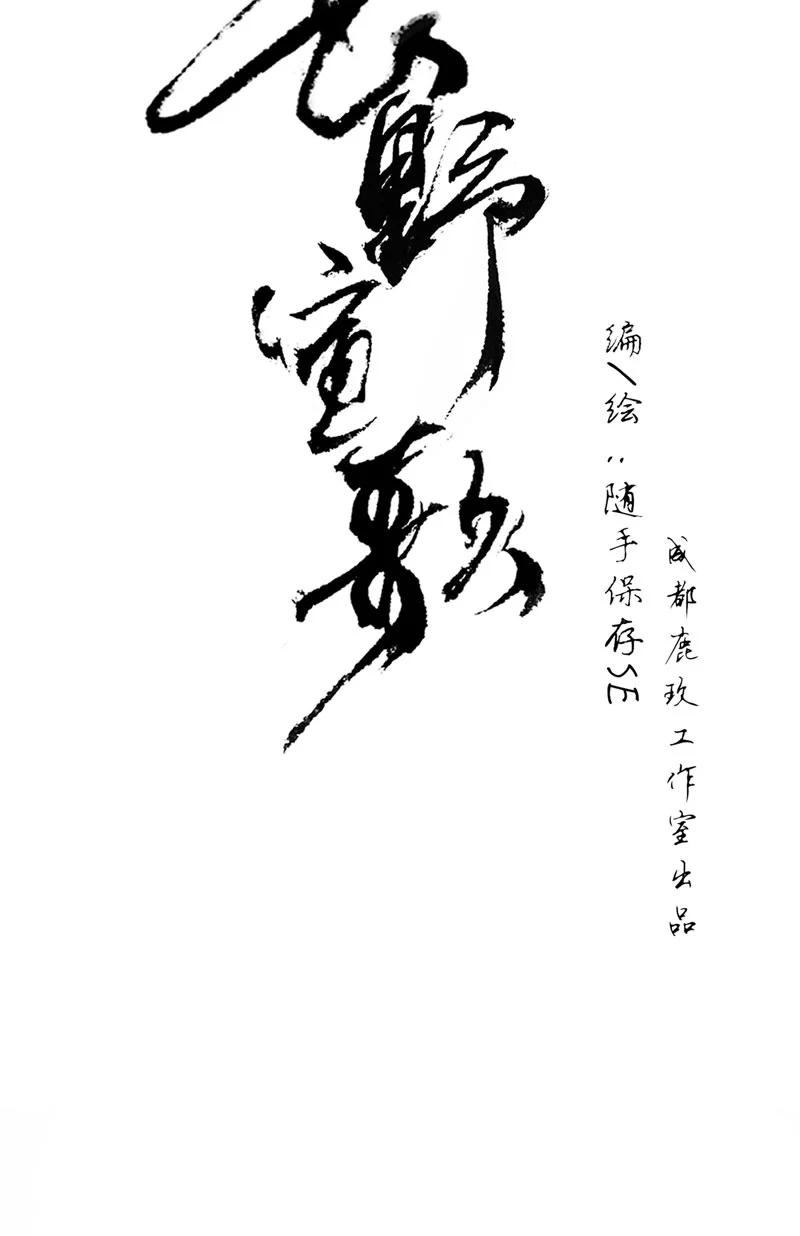 野宣
编/绘：随手保存SE
成都鹿玖工作室出品